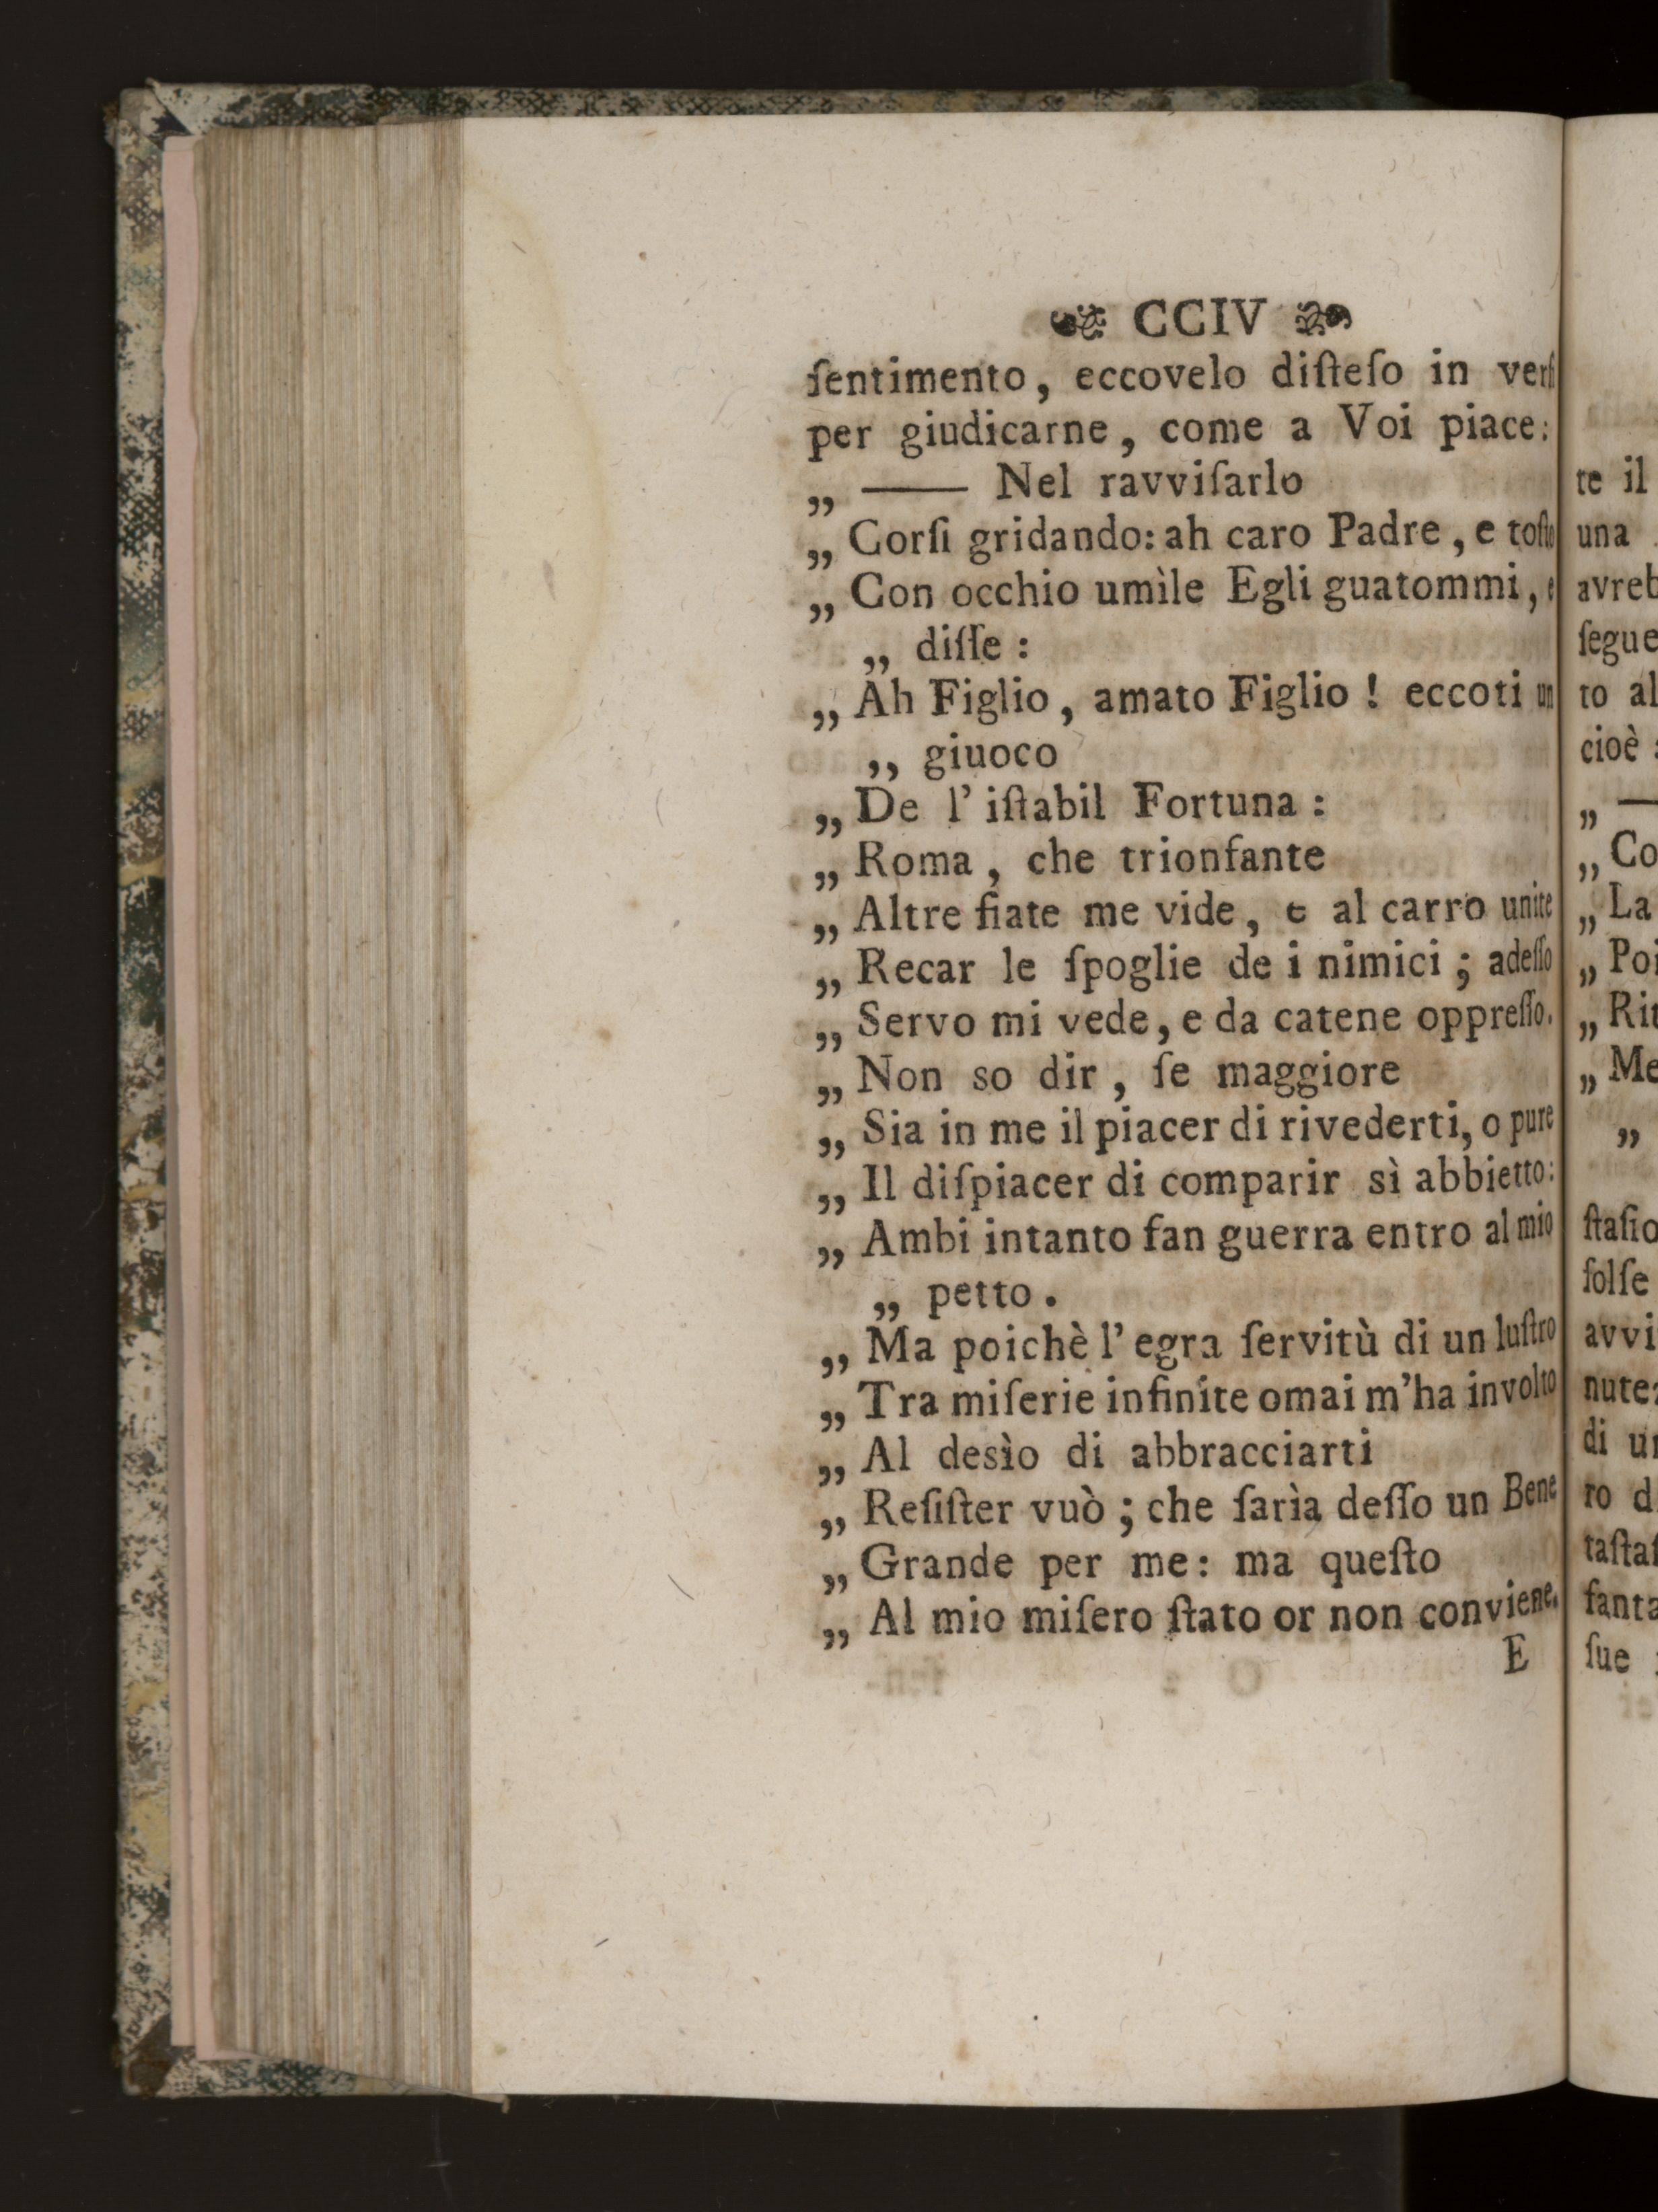 CCIV
ſentimento, eccovelo diſteſo in verſi
per giudicarne, come a Voi piace:
„ —— Nel ravviſarlo
„ Corſi gridando: ah caro Padre, e toſto
„ Con occhio umìle Egli guatommi, e
„ diſſe:
„ Ah Figlio, amato Figlio! eccoti un
„ giuoco
„ De l' iſtabil Fortuna:
„ Roma, che trionfante
„ Altre fiate me vide, e al carro unite
„ Recar le ſpoglie de i nimici; adeſſo
„ Servo mi vede, e da catene oppreſſo.
„ Non so dir, ſe maggiore
„ Sia in me il piacer di rivederti, o pure
„ Il diſpiacer di comparir sì abbietto:
„ Ambi intanto fan guerra entro al mio
„ petto.
„ Ma poichè l' egra ſervitù di un luſtro
„ Tra miſerie infinite omai m'ha involto
„ Al desìo di abbracciarti
„ Reſiſter vuò; che ſarìa deſſo un Bene
„ Grande per me: ma queſto
„ Al mio miſero ſtato or non conviene.
E
te il
una
avreb
ſegue
to al
cioè
„ —
„ Co
„ La
„ Poi
„ Rit
„ Me
„
ſtaſio
folſe
avvi
nute
di un
ro d
taſtaſ
fanta
ſue